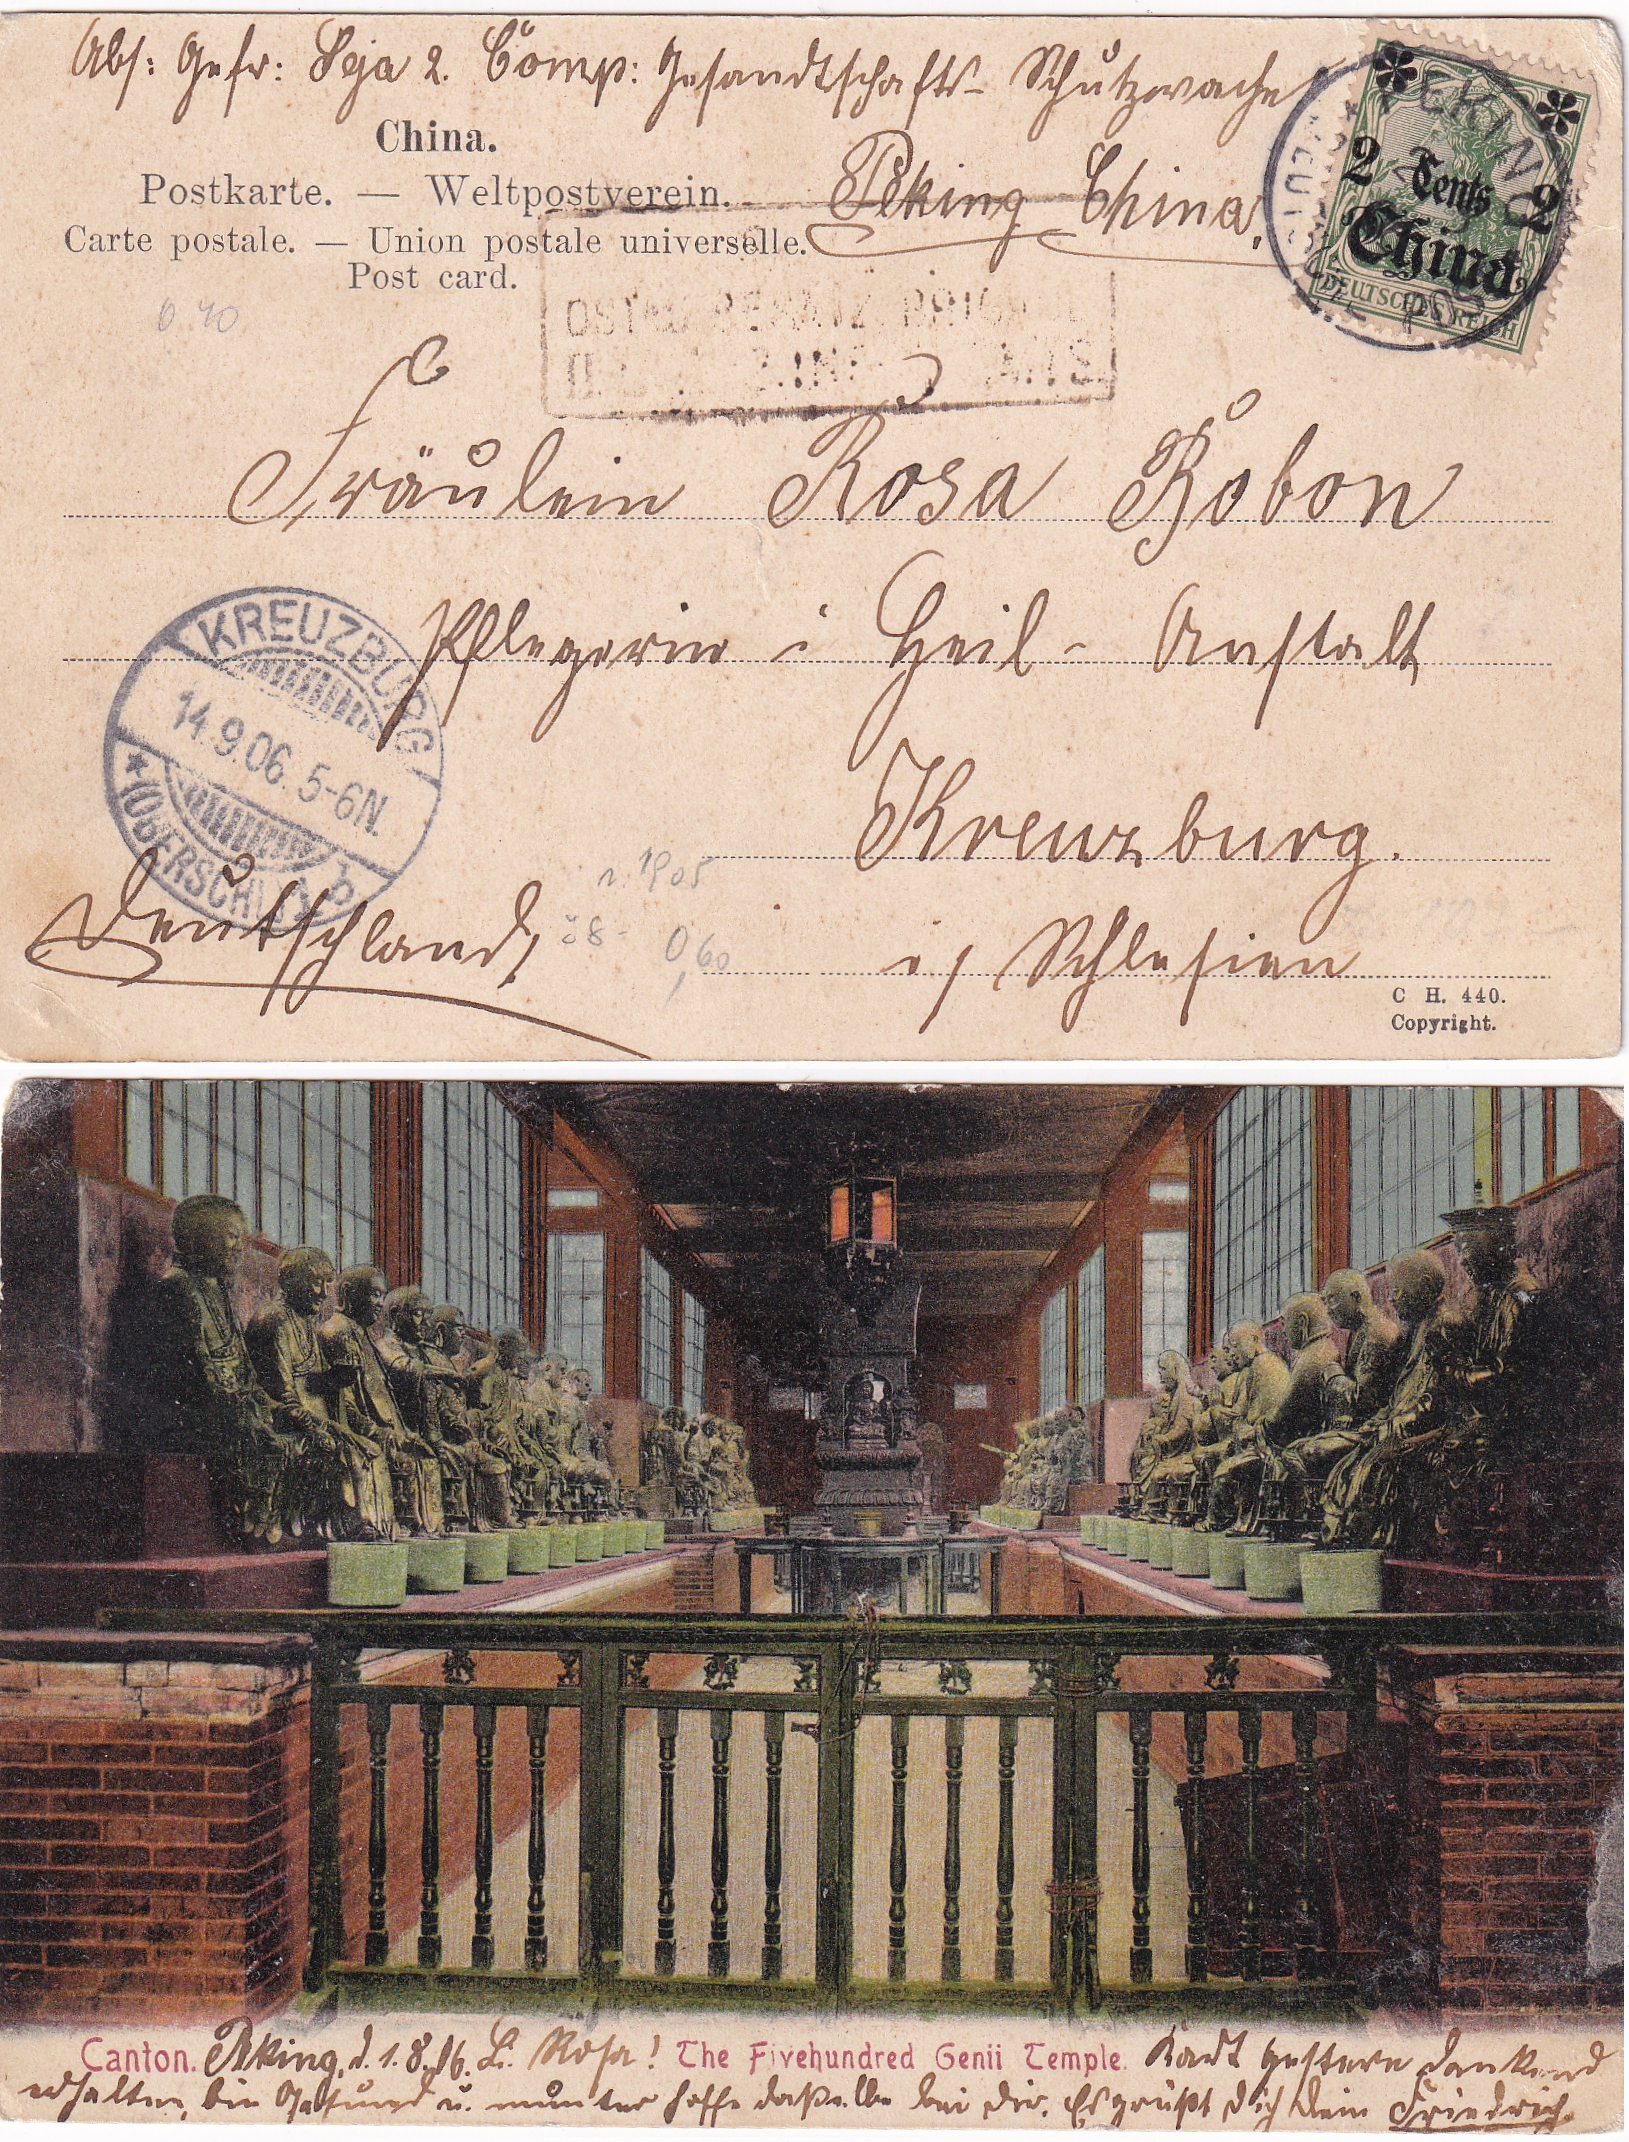 Abs: Gefr: Seja 2. Comp: Gesandtschafts- Schutzwache
China.
Postkarte. — Weltpostverein.
Peking China.
Carte postale. — Union postale universelle.
Post card.
PEKING
DEUTSCHE POST
2 Cents 2
China
DEUTSCHES REICH
Fräulein Rosa Bobon
Pflegerin i Heil- Anstalt
KREUZBURG
14.9.06. 5-6N.
(OBERSCHL.) b
Kreuzburg.
Deutschland,
i/ Schlesien
0,60
C H. 440.
Copyright.
Canton. Peking, d. 1. 8. 06. L. Rosa! The Fivehundred Genii Temple. Kart gestern dankend
erhalten, bin Gesund u. munter hoffe daßelbe bei dir. Es grüßt dich dein Friedrich.